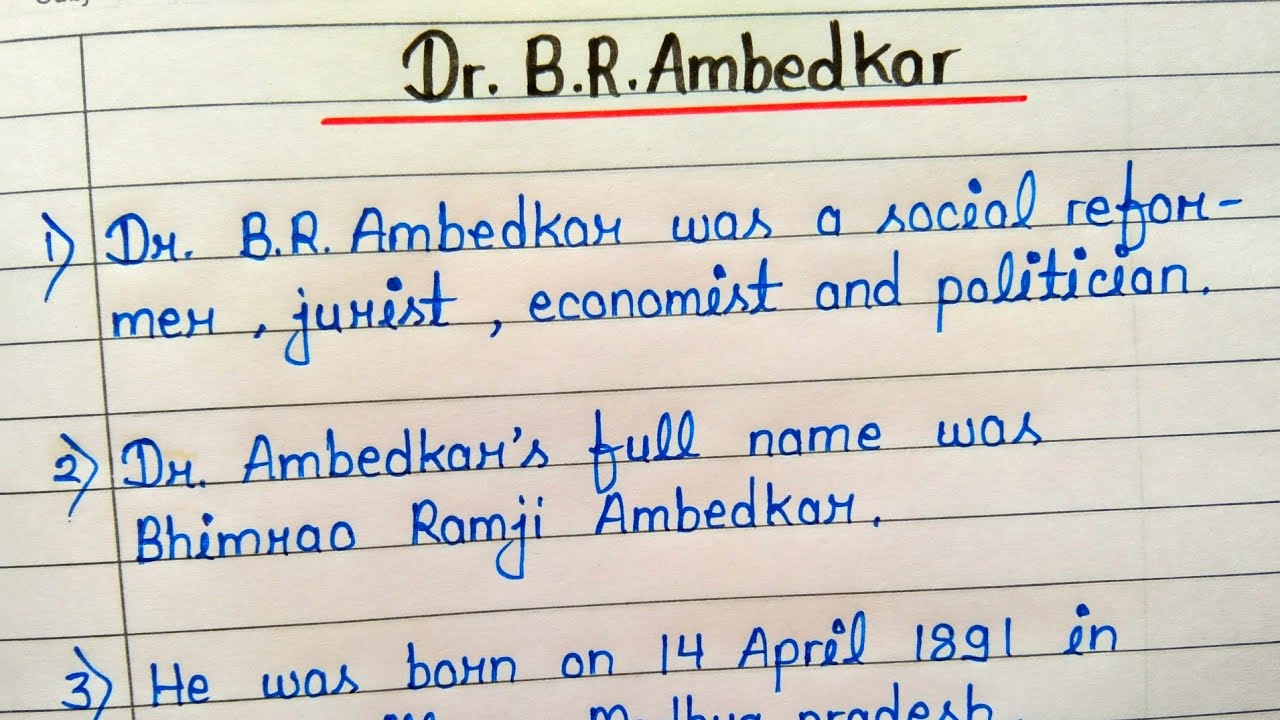 Dr. B.R. Ambedkar
1) Dr. B.R. Ambedkar was a social refor-
mer, jurist, economist and politician.
2) Dr. Ambedkar's full name was
Bhimrao Ramji Ambedkar.
3) He was born on 14 April 1891 in
pradesh